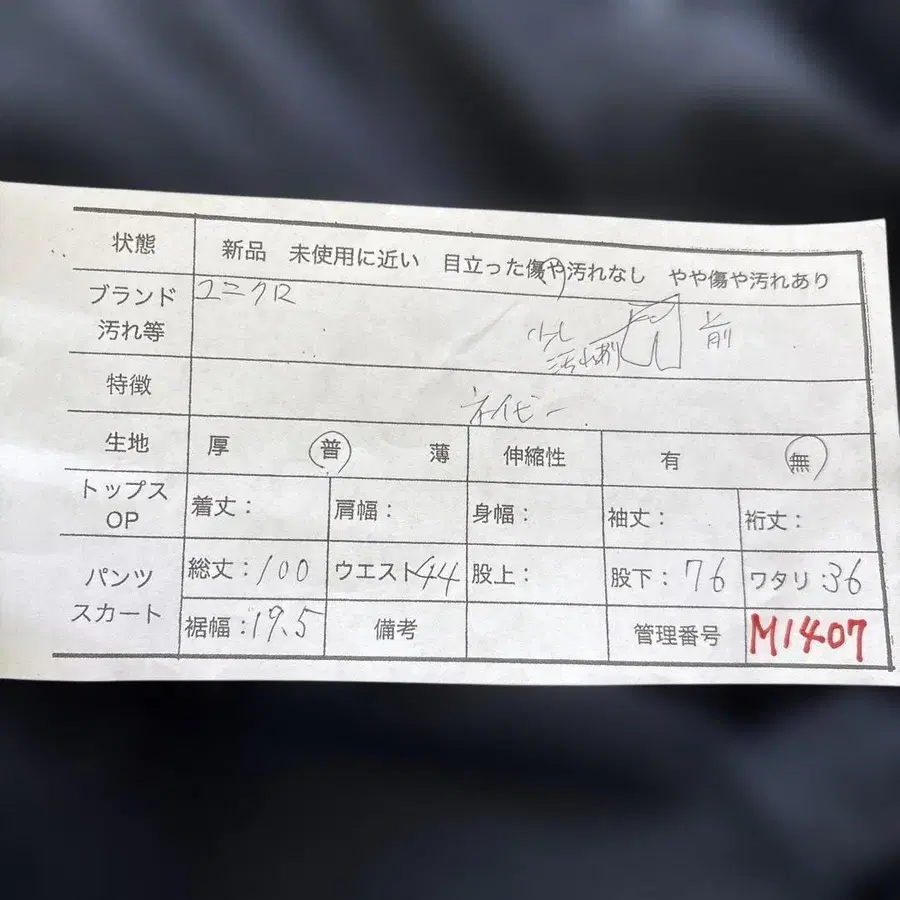 状態 新品 未使用に近い 目立った傷や汚れなし やや傷や汚れあり
ブランド ユニクロ
汚れ等 少し 汚れあり 前
特徴 ネイビー
生地 厚 普 薄 伸縮性 有 無
トップス OP 着丈: 肩幅: 身幅: 袖丈: 裄丈:
パンツ スカート 総丈:100 ウエスト44 股上: 股下:76 ワタリ:36
裾幅:19.5 備考 管理番号 M1407